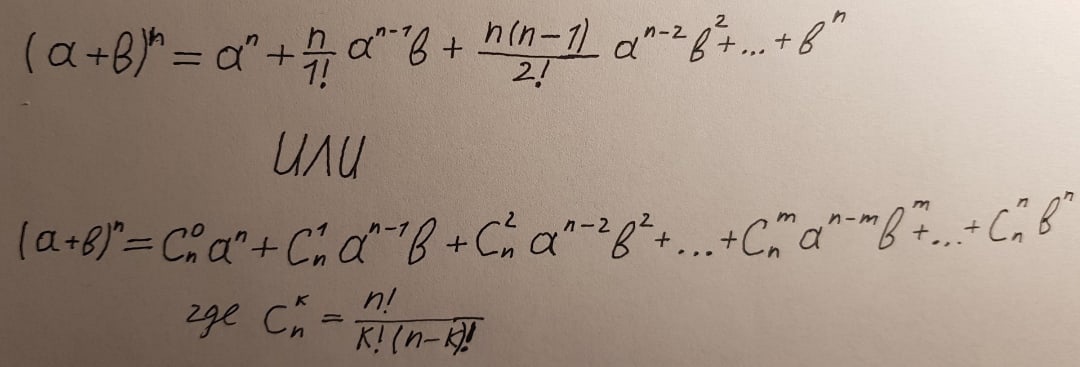 (a+b)ⁿ = aⁿ + n/1! aⁿ⁻¹b + n(n-1)/2! aⁿ⁻²b² + ... + bⁿ
или
(a+b)ⁿ = Cₙ⁰aⁿ + Cₙ¹aⁿ⁻¹b + Cₙ²aⁿ⁻²b² + ... + Cₙᵐaⁿ⁻ᵐbᵐ + ... + Cₙⁿbⁿ
где Cₙᵏ = n!/k!(n-k)!